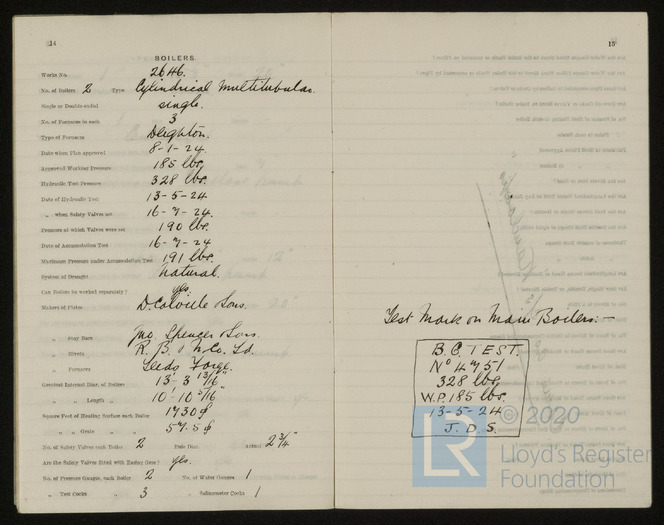 14
BOILERS.
Works No. 2646.
No. of Boilers 2 Type Cylindrical Multitubular.
Single or Double-ended single.
No. of Furnaces in each 3
Type of Furnaces Deighton.
Date when Plan approved 8-1-24.
Approved Working Pressure 185 lbs.
Hydraulic Test Pressure 328 lbs.
Date of Hydraulic Test 13-5-24
„ when Safety Valves set 16-7-24.
Pressure at which Valves were set 190 lbs.
Date of Accumulation Test 16-7-24
Maximum Pressure under Accumulation Test 191 lbs.
System of Draught natural.
Can Boilers be worked separately? yes.
Makers of Plates D. Colville & Sons.
„ Stay Bars Jno. Spencer & Sons.
„ Rivets R. B. & N. Co. Ld.
„ Furnaces Leeds Forge.
Greatest Internal Diam. of Boilers 13'-3 13/16"
„ „ Length „ 10'-10 5/16"
Square Feet of Heating Surface each Boiler 1730
„ „ Grate „ „ 57.5
No. of Safety Valves each Boiler 2 Rule Diam. Actual 2 3/4"
Are the Safety Valves fitted with Easing Gear? yes.
No. of Pressure Gauges, each Boiler 2 No. of Water Gauges 1
„ Test Cocks „ 3 „ Salinometer Cocks 1
15
Test Mark on Main Boilers:-
B.C. TEST.
No 4751
328 lbs.
W.P. 185 lbs.
13-5-24
J.D.S.
© 2020
LR
Lloyd's Register
Foundation